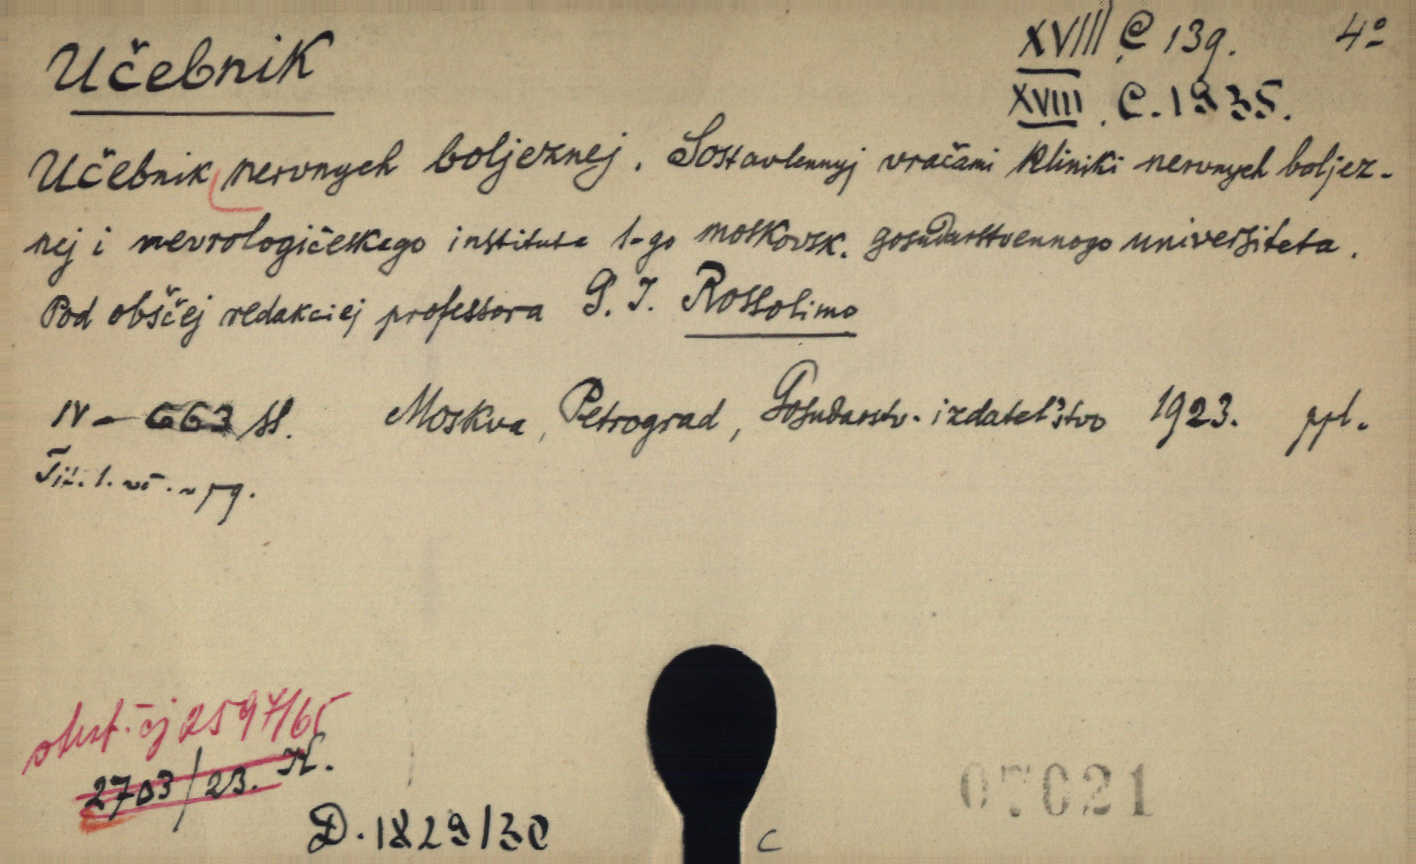 Učebnik
XVIII C 139. 4º
XVIII. C. 1935.
Učebnik nervnych boljeznej. Sostavlennyj vračami kliniki nervnych boljez-
nej i nevrologičeskago instituta 1-go moskovsk. gosudarstvennogo universiteta.
Pod obščej redakciej professora G. I. Rossolimo
IV – 663 ss. Moskva, Petrograd, Gosudarstv. izdatel'stvo 1923. ppl.
Tit. l.
čj 2597/65
2703/23. K.
D. 1829/30
C
07021